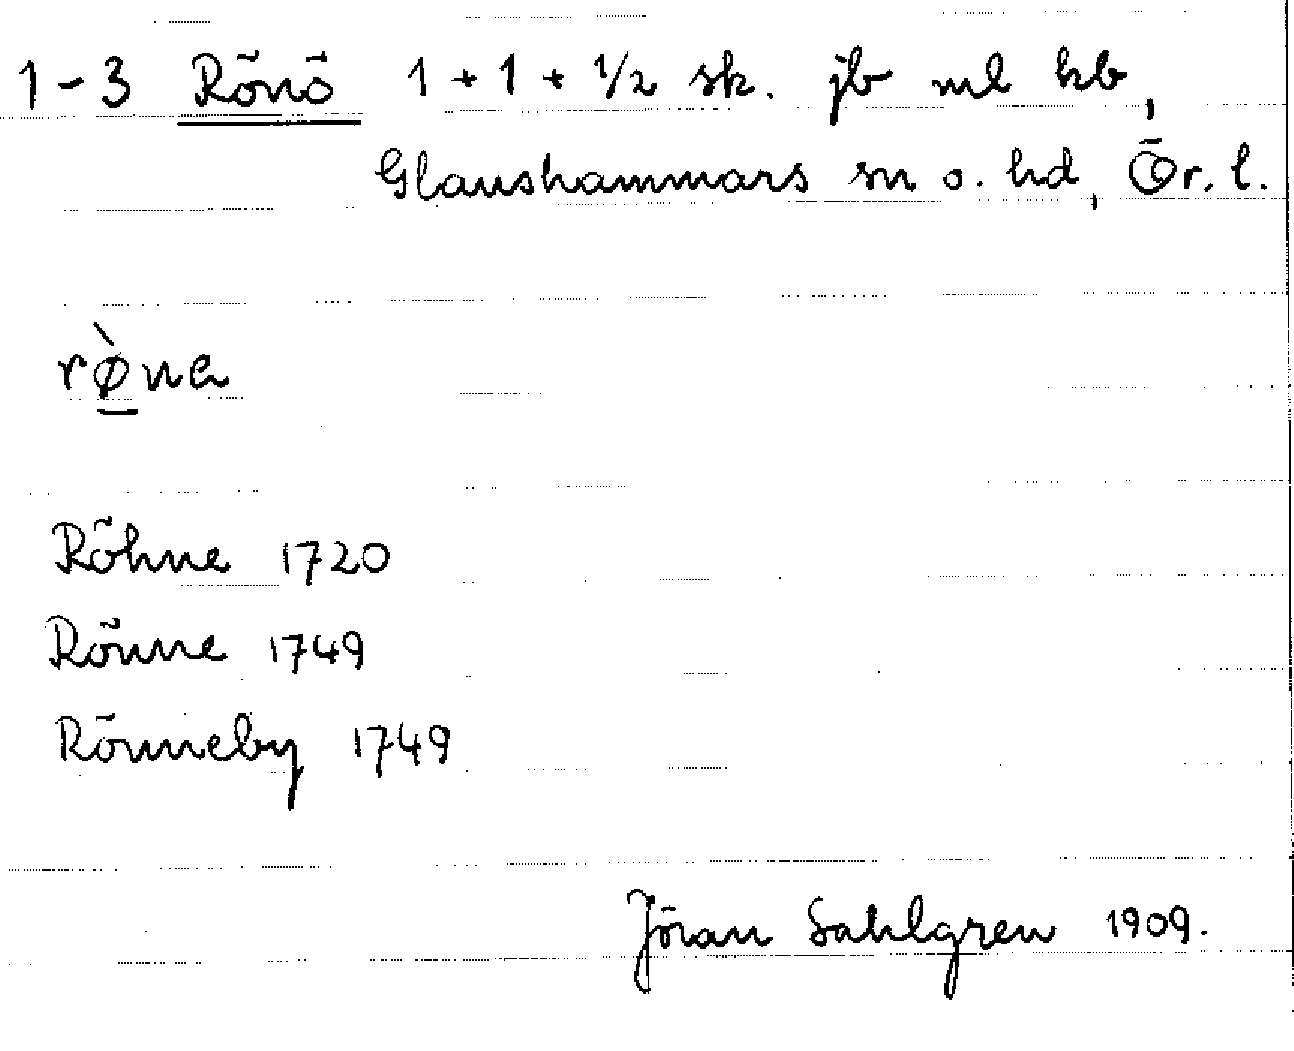 1-3 Rönö 1 + 1 + 1/2 sk. jb ml kb,
Glanshammars sn o. hd, Ör. l.
rø̀na
Röhne 1720
Rönne 1749
Rönneby 1749
Jöran Sahlgren 1909.